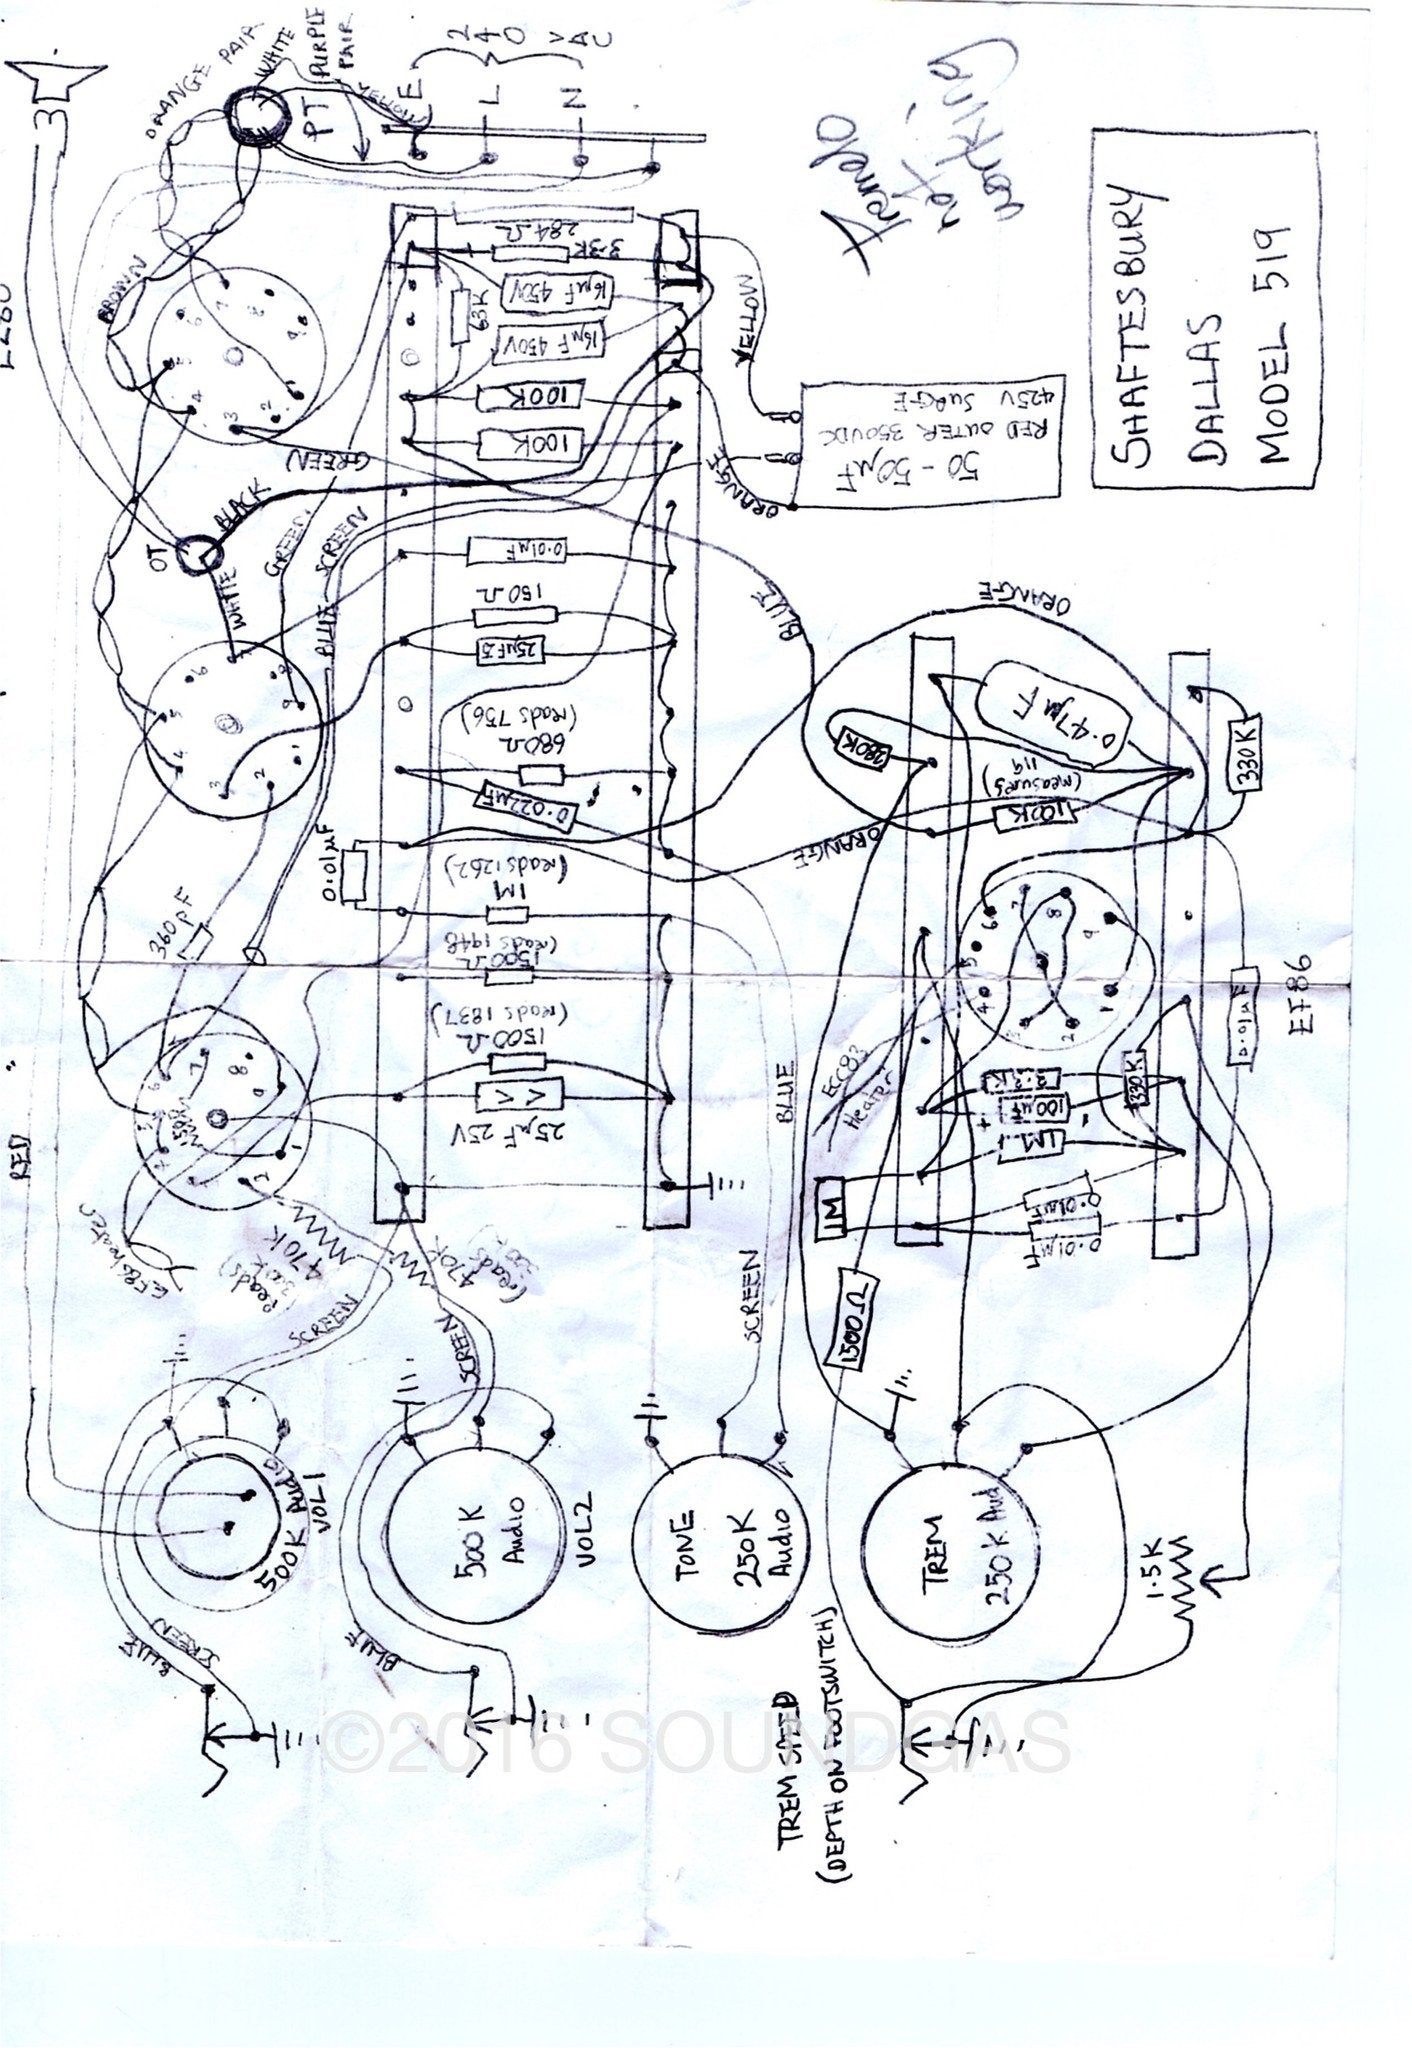 SHAFTESBURY
DALLAS
MODEL 519
Tremelo
not
working
240
VAC
E
L
N
PT
ORANGE PAIR
WHITE
PURPLE
PAIR
YELLOW
BROWN
GREEN
284Ω
3.3K
16µF 450V
16µF 450V
63K
100K
100K
YELLOW
50-50µF
RED OUTER 350VDC
425V SURGE
ORANGE
ORANGE
OT
BLACK
WHITE
GREEN
BLUE
SCREEN
0.01µF
150Ω
25µF 25
680Ω
(reads 756)
0.022µF
0.01µF
1M
(reads 1262)
1500Ω
(reads 1948
1500Ω
(reads 1837)
25µF 25V
BLUE
ORANGE
ORANGE
0.47µF
380K
100K
(measures)
119
330K
360pF
ECC83
Heater
EF86
0.01µF
330K
3.3K
100µF
+
1M
1M
0.01µF
0.01µF
1500Ω
RED
EF86 heater
470K
(reads)
470K
(reads
SCREEN
SCREEN
BLUE
SCREEN
500K Audio
VOL1
BLUE
SCREEN
500K
Audio
VOL2
BLUE
TONE
250K
Audio
TREM
250K Aud
1.5K
TREM SPEED
(DEPTH ON FOOTSWITCH)
©2016 SOUNDGAS